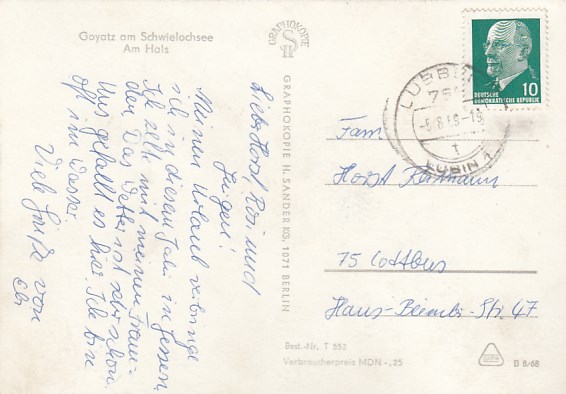 Goyatz am Schwielochsee
Am Hals
Liebe Horst, Rosi und
Jürgen!
Meinen Urlaub verbringe
ich in diesem Jahr in Jessern.
Ich zelte mit meinen Freun-
den. Das Wetter ist sehr schön.
Uns gefällt es hier. Ich bin
oft im Wasser.
Viele Grüße von
GRAPHOKOPIE
GRAPHOKOPIE H. SANDER KG, 1071 BERLIN
LÜBBEN
-1
LUBIN 1
t
10
DEUTSCHE
DEMOKRATISCHE REPUBLIK
Fam
Horst
75 Cottbus
Str. 47
Best.-Nr. T 552
Verbraucherpreis MDN -,25
B 8/68